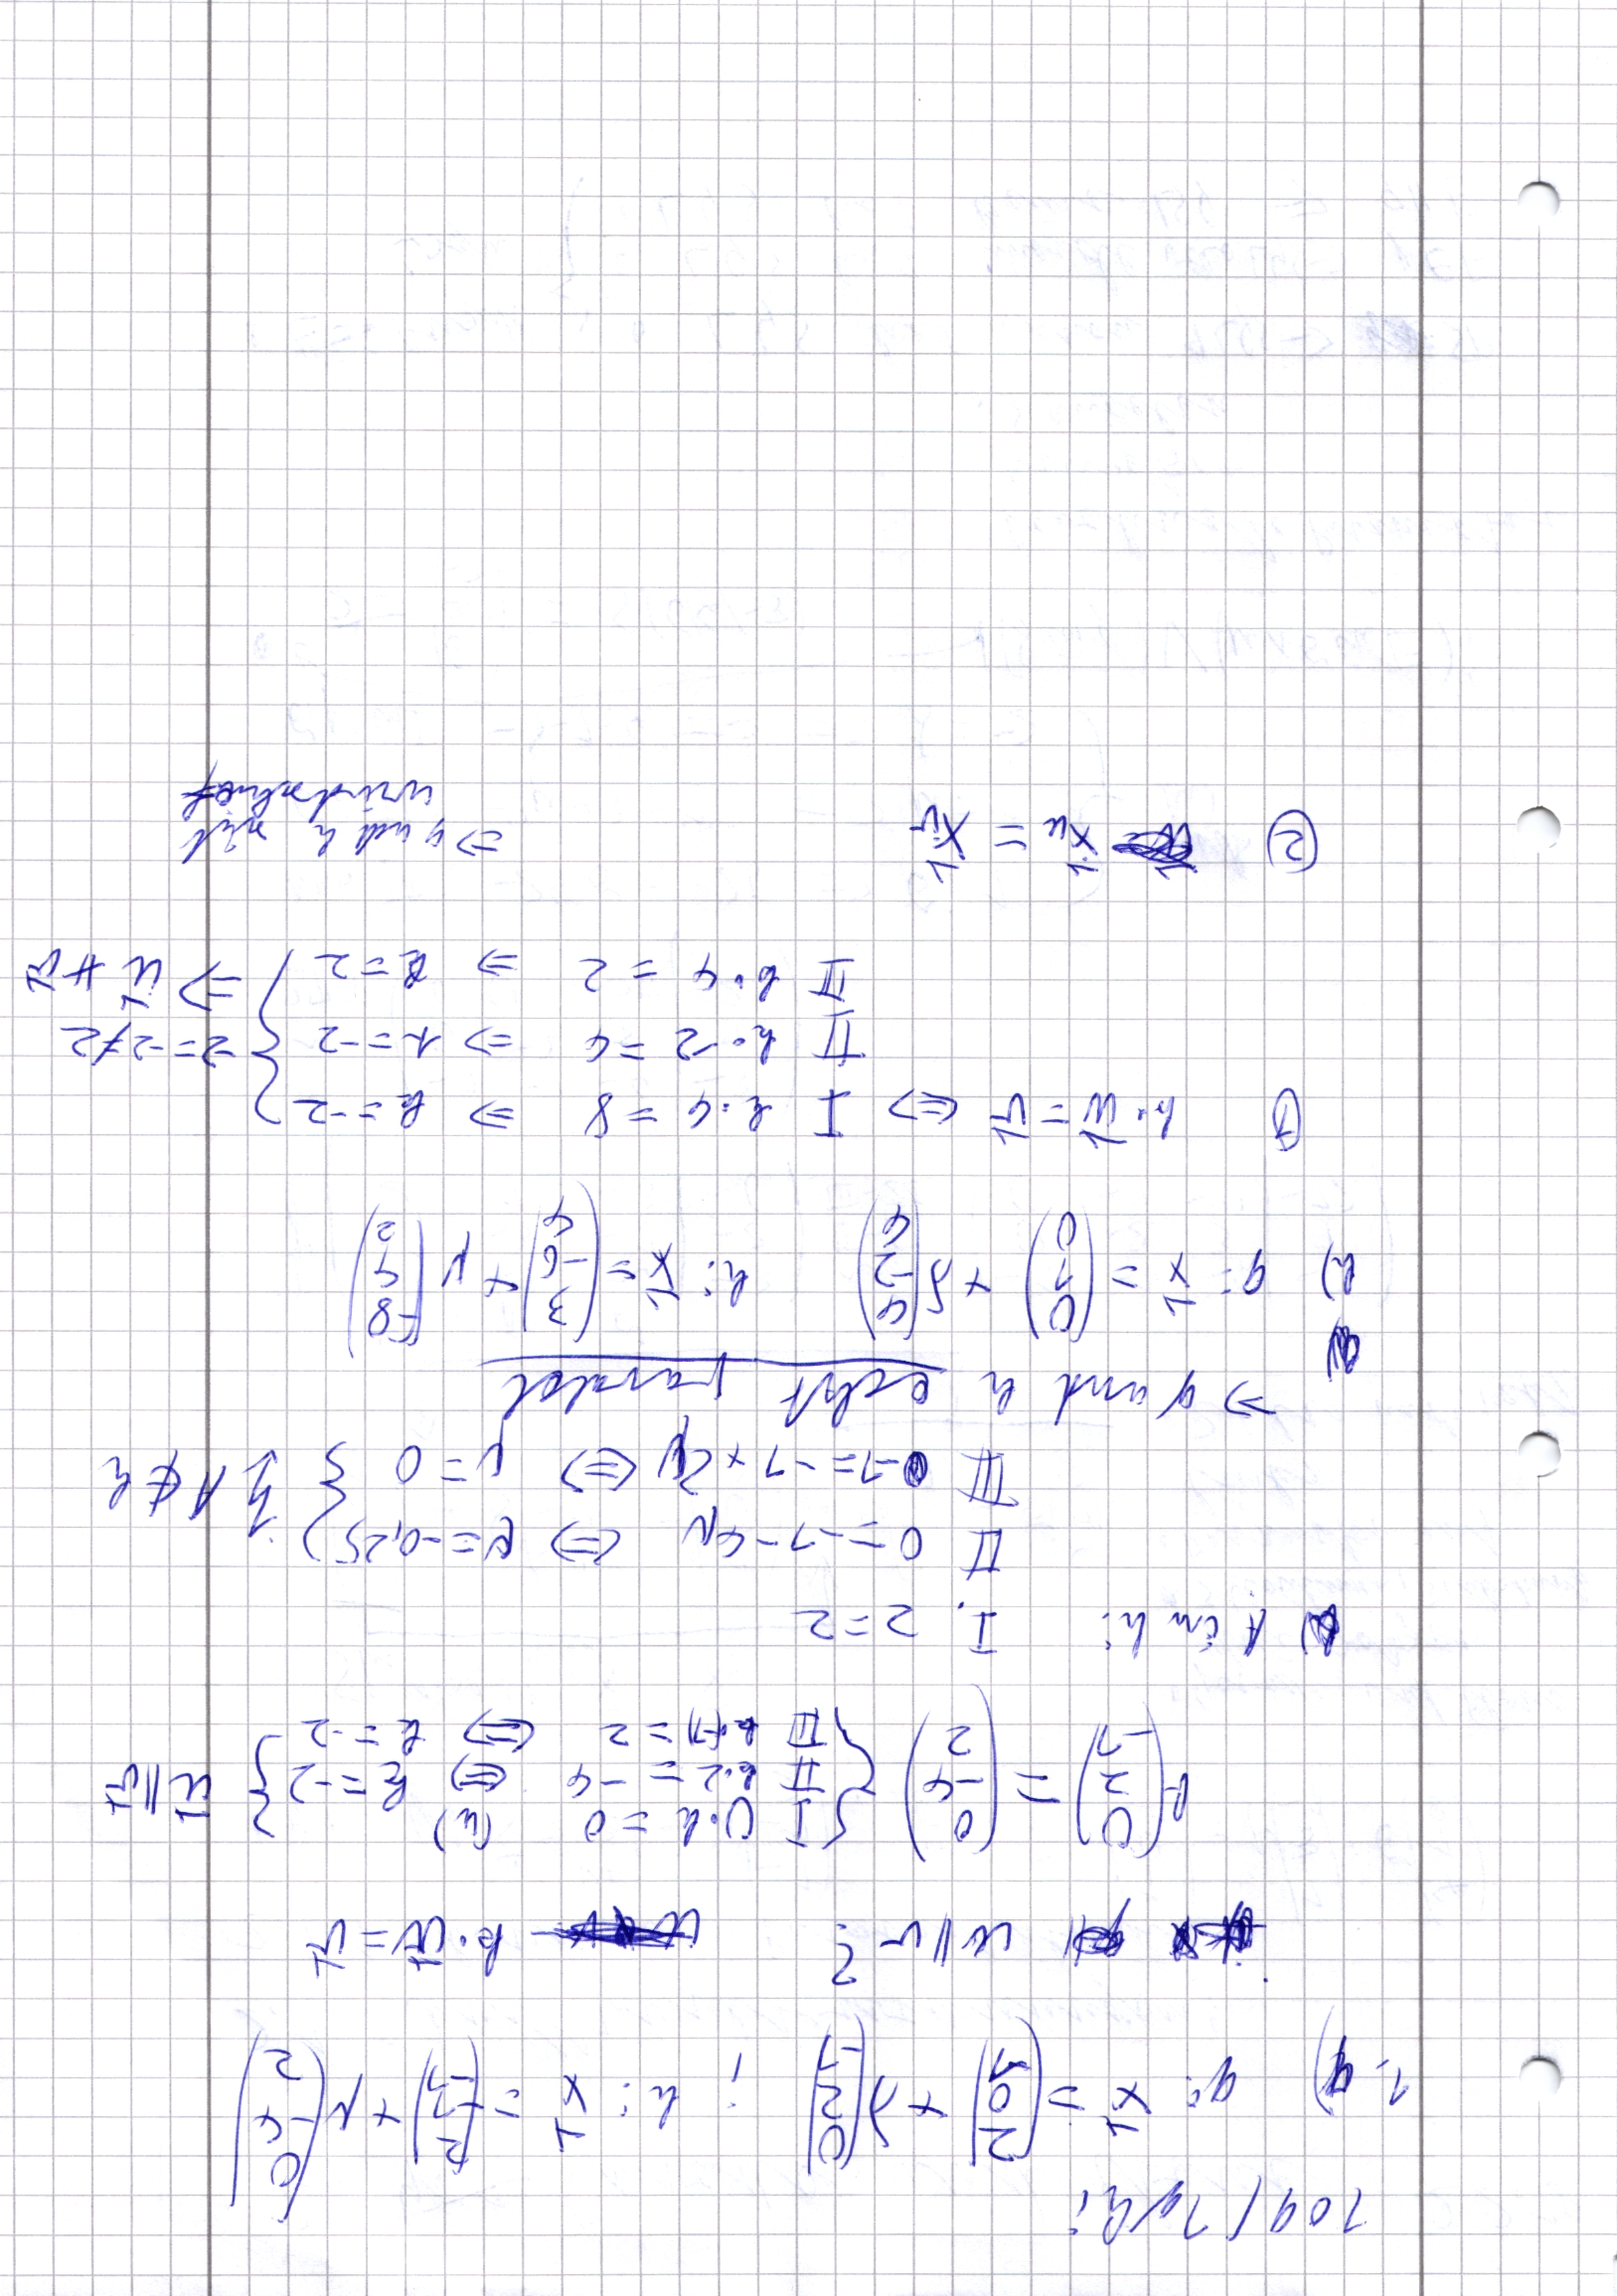 109/1g,h:
1. g) g: x⃗ = (2 0 -1) + λ(0 2 -1) ; h: x⃗ = (2 -1 -1) + μ(0 -4 2)
u ∥ v ? k·u⃗ = v⃗
k(0 2 -1) = (0 -4 2) { I 0·k = 0 (w)
II k·2 = -4 ⇔ k = -2
III k·(-1) = 2 ⇔ k = -2 } u⃗ ∥ v⃗
A in h: I. 2 = 2
II 0 = -1 - 4μ ⇔ μ = -0,25
III -1 = -1 + 2μ ⇔ μ = 0 } ↯ A ∉ h
⇒ g und h echt parallel
h) g: x⃗ = (0 1 0) + λ(4 -2 4) h: x⃗ = (3 -6 4) + μ(-8 4 2)
① k·u⃗ = v⃗ ⇔ I k·4 = 8 ⇒ k = -2
II k·-2 = 4 ⇒ k = -2
III k·4 = 2 ⇒ k = 2 } -2 = -2 ≠ 2 ⇒ u⃗ ∦ v⃗
② x⃗u = x⃗v ⇒ g und h sind
windschief